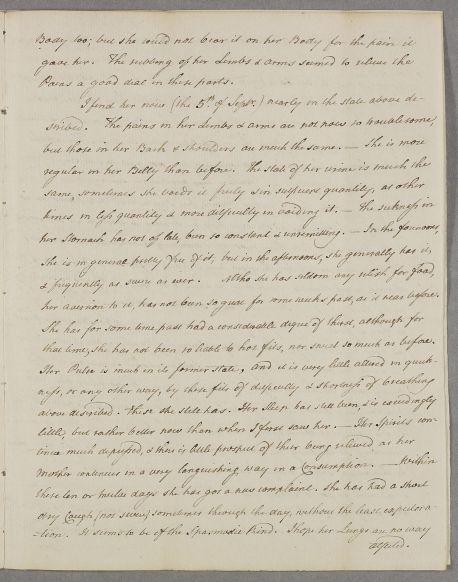 Body too; but she could not bear it on her Body for the pain it
gave her. The rubbing of her Limbs & arms seemed to relieve the
Pains a good deal in these parts.
I find her now (the 5th of Septr.) nearly in the state above de-
scribed. The pains in her Limbs & arms are not now so troublesome,
but those in her Back & shoulders are much the same. — She is more
regular in her Belly than before. The state of her urine is much the
same, sometimes she voids it freely & in sufficient quantity, at other
times in less quantity & more difficulty in voiding it. — The sickness in
her Stomach has not of late, been so constant & unremitting. — In the forenoons,
she is in general pretty free of it, but in the afternoons, she generally has it,
& frequently as severe as ever. Altho she has seldom any relish for food,
her aversion to it, has not been so great for some weeks past, as it was before.
She has for some time past had a considerable degree of thirst, although for
that time, she has not been so liable to hot fits, nor sweat so much as before.
Her Pulse is much in its former state, and it is very little altered in quick-
ness, or any other way, by those fits of difficulty & shortness of breathing
above described. These she still has. Her Sleep has still been, & is exceedingly
little, but rather better now than when I first saw her. — Her Spirits con-
tinue much depressed, & there is little prospect of their being relieved as her
Mother continues in a very languishing way in a Consumption. — Within
these ten or twelve days she has got a new complaint. She has had a short
dry Cough (not severe) sometimes through the day, without the least expectora-
-tion. It seems to be of the Spasmodic kind. I hope her Lungs are no way
affected.